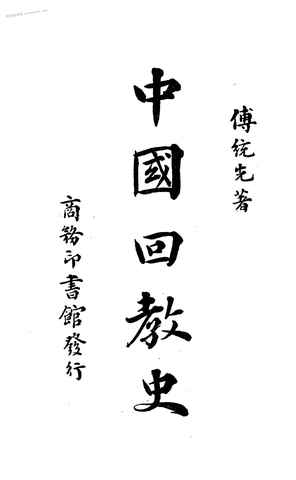 傅統先著
中國回教史
商務印書館發行